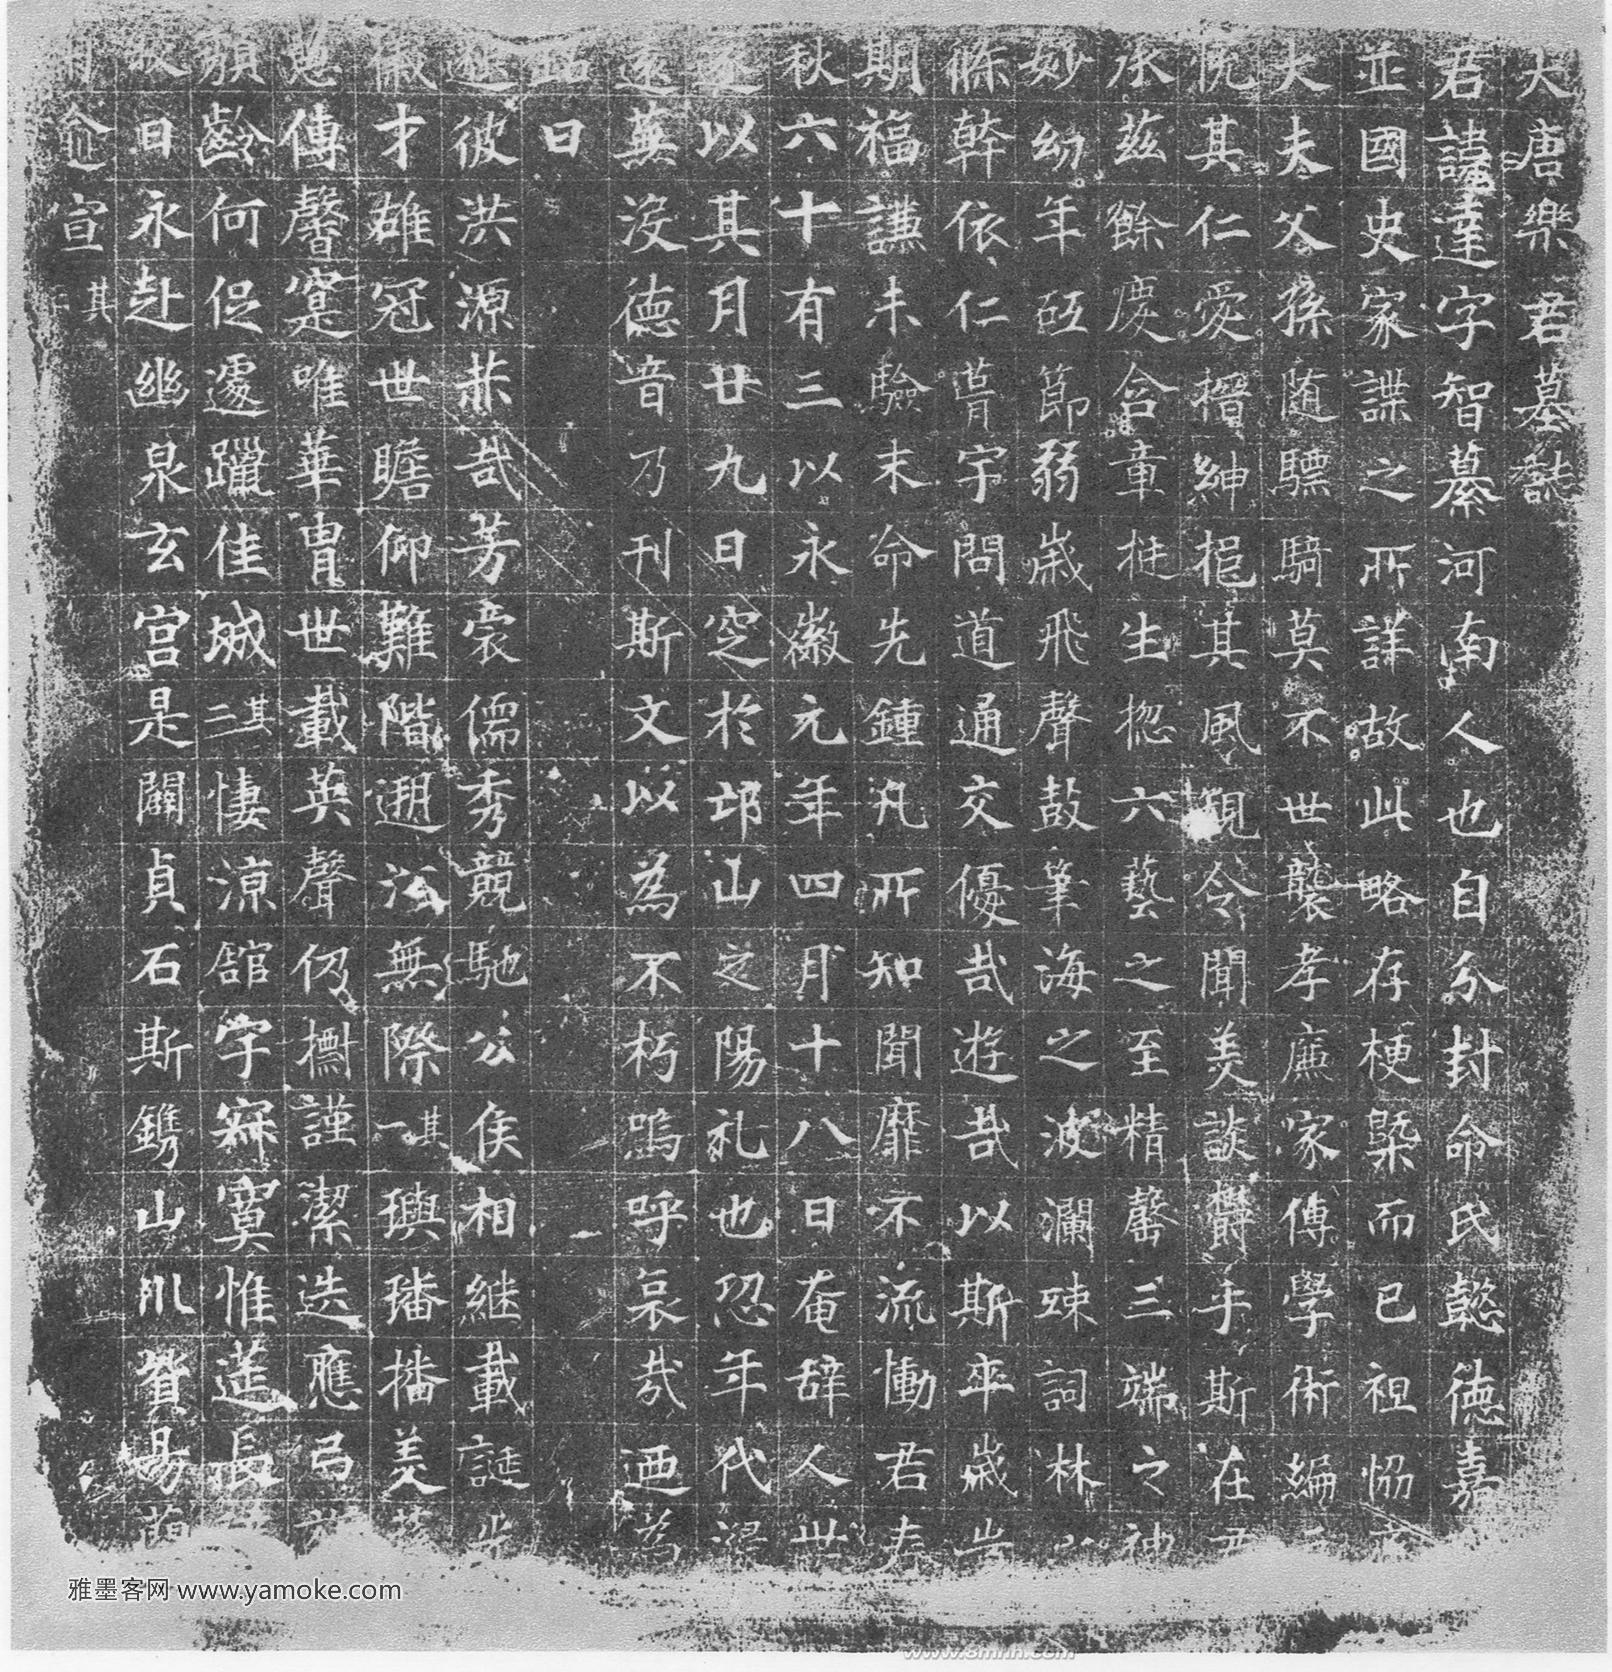 大唐樂君墓誌
君諱達字智纂河南人也自分封命氏懿德嘉
並國史家諜之所詳故此略存梗槩而已祖協
大夫父孫隨驃騎莫不世襲孝廉家傳學術編
悅其仁愛搢紳挹其風規令聞美談欝乎斯在
承茲餘慶含章挺生揔六藝之至精罄三端之神
妙幼年砥節弱歲飛聲鼓筆海之波瀾竦詞林
條幹依仁脊宇問道通交優哉遊哉以斯卒歲
期福謙未驗末命先鍾凡所知聞靡不流慟君春
秋六十有三以永徽元年四月十八日奄辞人世
遂以其月廿九日窆於邙山之陽礼也恐年代
遠蕪沒德音乃刊斯文以為不朽嗚呼哀哉迺為
銘曰
彼洪源恭哉芳裔儒秀競馳公侯相継載誕
才雄冠世瞻仰難階遡沿無際其一璵璠播美
傳馨寔唯華胄世載英聲仞擱謹潔迭應弓
顏齡何促遽躐佳城其二悽涼舘宇寂寞惟莚長
日永赴幽泉玄宮是闢貞石斯鐫山川貿易
宣其
雅墨客网 www.yamoke.com